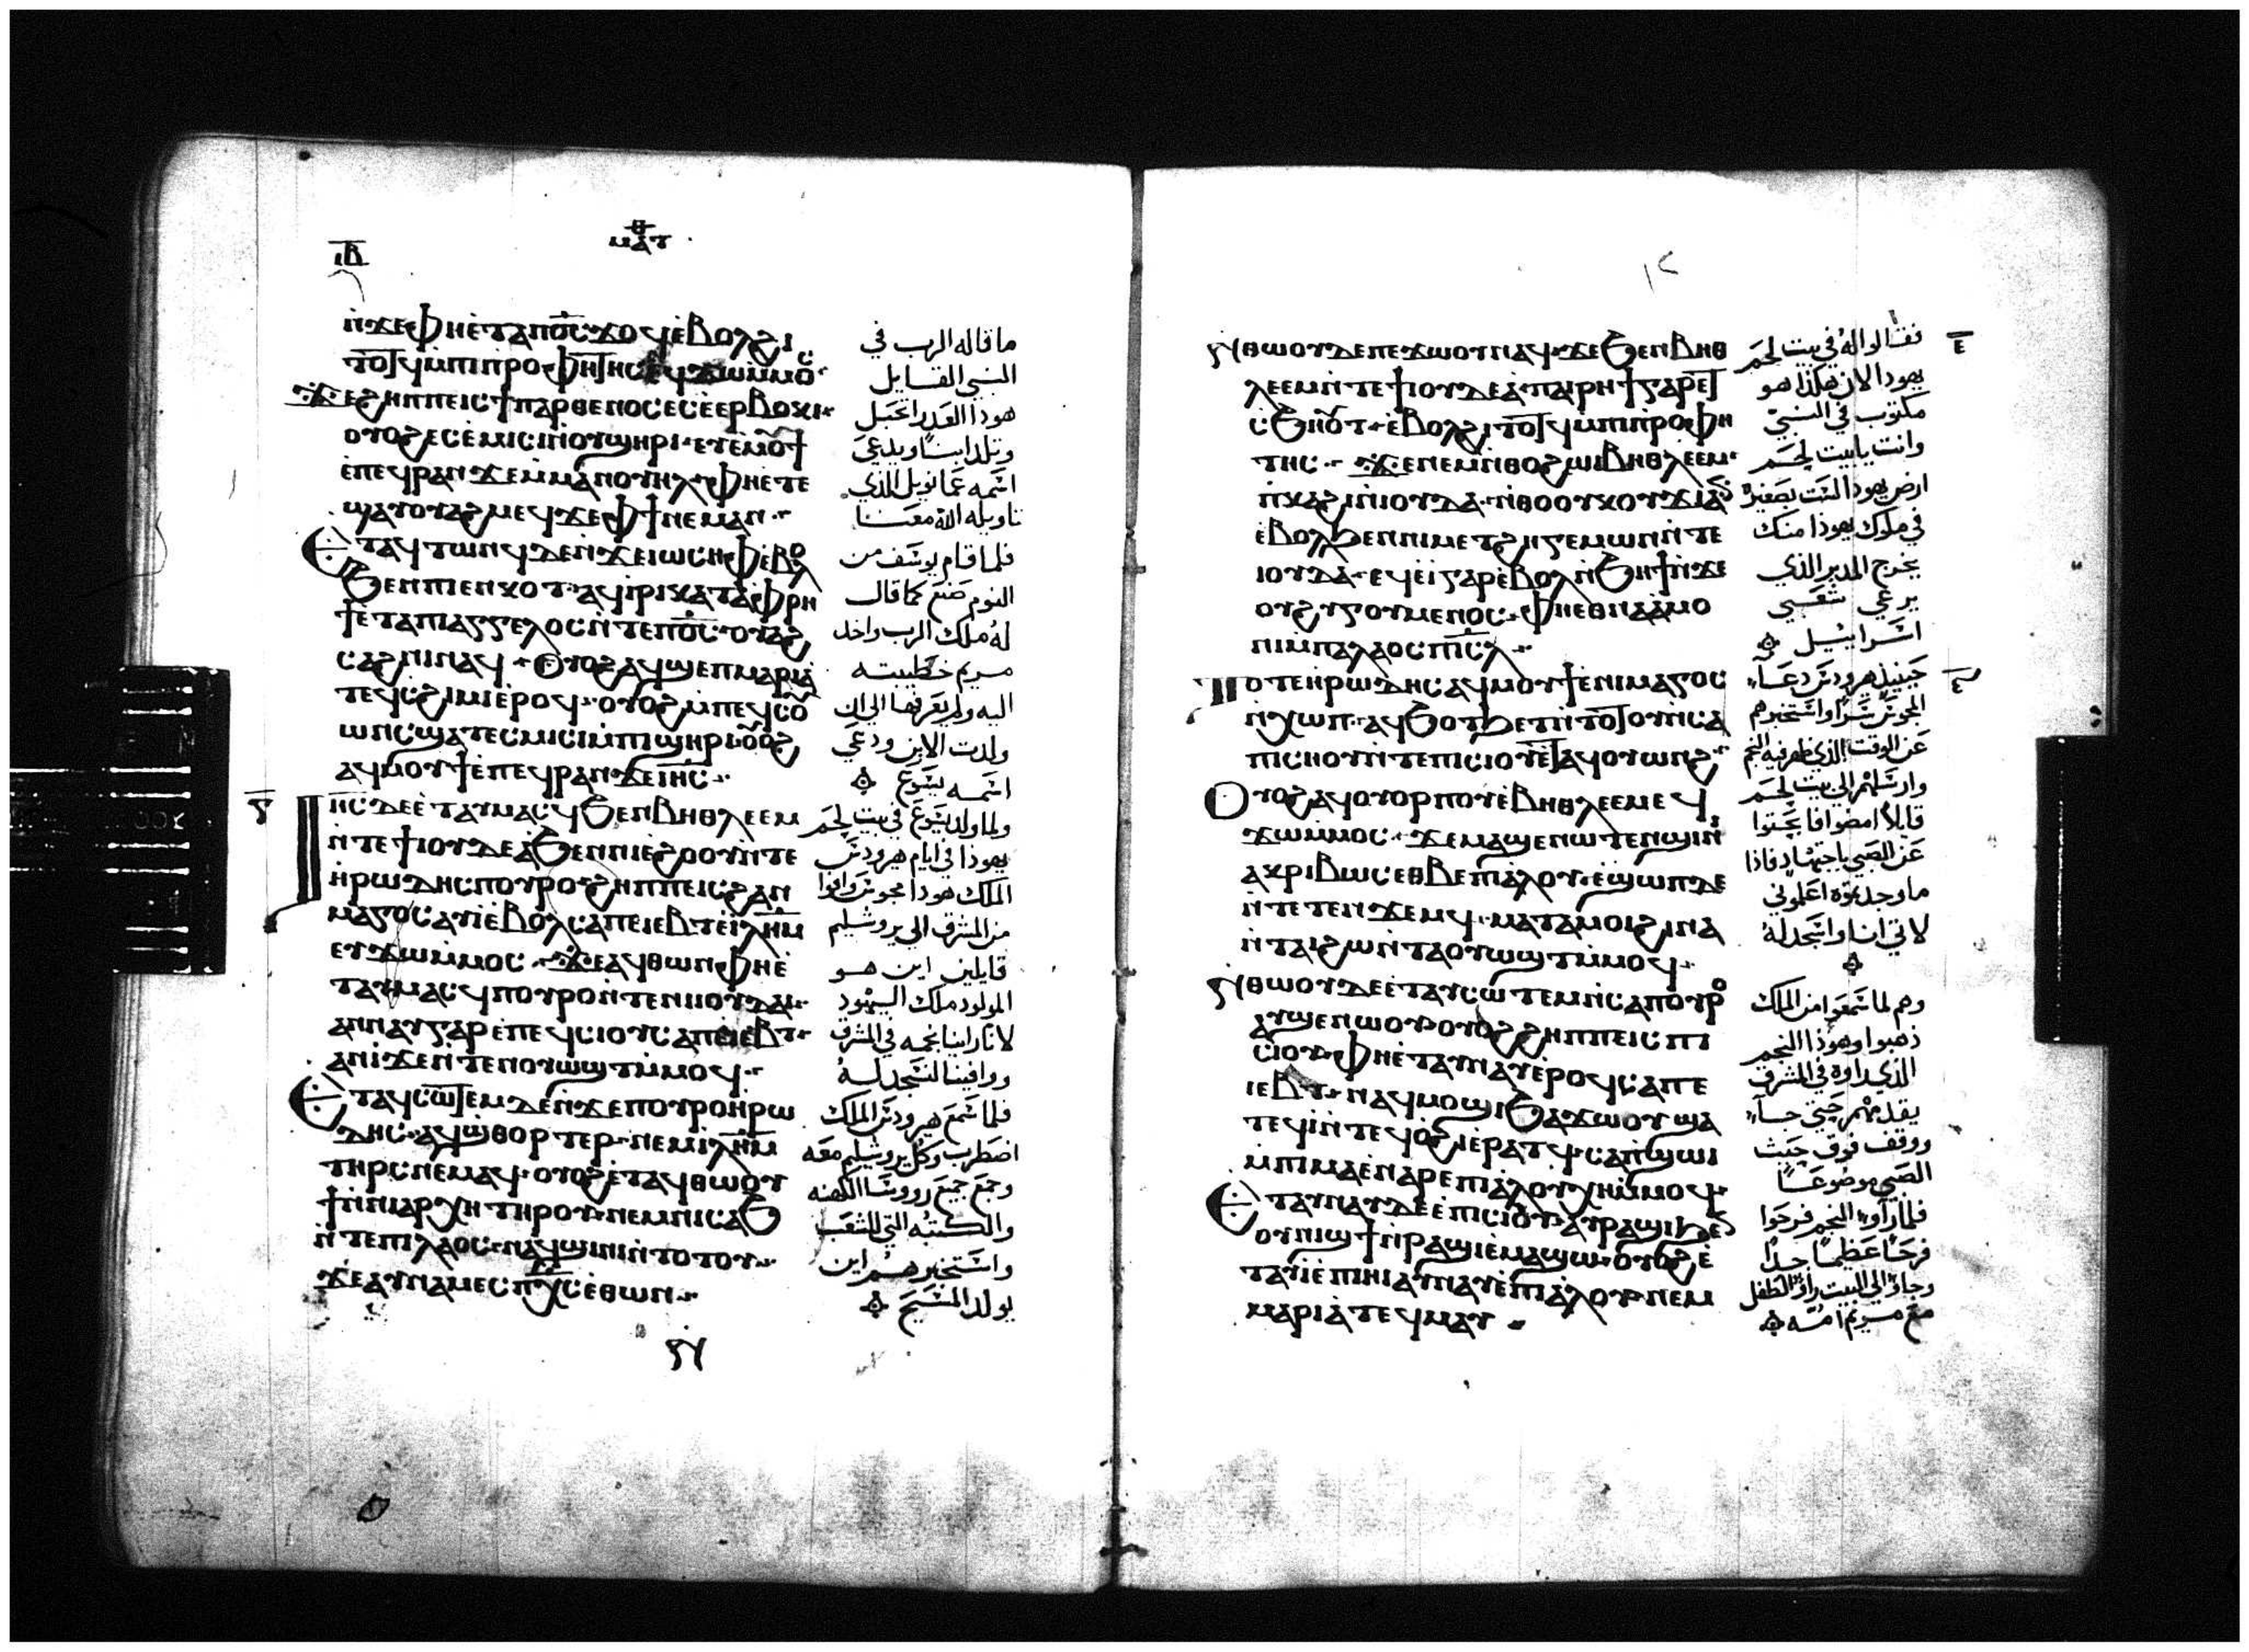 ⲓⲃ
ⲙⲁⲧ
ⲛ̇ϫⲉⲫⲏⲉ̇ⲧⲁⲡⲟ̅ⲥ̅ϫⲟϥⲉ̇ⲃⲟⲗϩⲓ
ⲧⲟⲧϥⲙ̇ⲡⲓⲡⲣⲟⲫⲏⲧⲏⲥⲉϥϫⲱⲙ̇ⲙⲟⲥ
ϫⲉϩⲏⲡⲡⲉⲓⲥϯⲡⲁⲣⲑⲉⲛⲟⲥⲉⲥⲉ̇ⲉⲣⲃⲟⲕⲓ
ⲟⲩⲟϩⲉⲥⲉ̇ⲙⲓⲥⲓⲛ̇ⲟⲩϣⲏⲣⲓ ⲉⲩⲉ̇ⲙⲟⲩϯ
ⲉ̇ⲡⲉϥⲣⲁⲛϫⲉⲙⲙⲁⲛⲟⲩⲏⲗ ⲫⲏⲉ̇ⲧⲉ
ϣⲁⲩⲟⲩⲁϩⲙⲉϥϫⲉⲫϯⲛⲉⲙⲁⲛ
Ⲉⲧⲁϥⲧⲱⲛϥⲇⲉⲛ̇ϫⲉⲓⲱⲥⲏⲫⲉ̇ⲃⲟⲗ
ϧⲉⲛⲡⲓⲉⲛⲕⲟⲧ ⲁϥⲓ̇ⲣⲓⲕⲁⲧⲁⲫⲣⲏ
ϯⲉ̇ⲧⲁⲡⲓⲁⲅⲅⲉⲗⲟⲥⲛ̇ⲧⲉⲡⲟ̅ⲥ̅ ⲟⲩⲁϩ
ⲥⲁϩⲛⲓⲛⲁϥ Ⲟⲩⲟϩⲁϥϣⲉⲡⲙⲁⲣⲓⲁ
ⲧⲉϥⲥϩⲓⲙⲓⲉ̇ⲣⲟϥ ⲟⲩⲟϩⲙ̇ⲡⲉϥⲥⲟⲩ
ⲱⲛⲥϣⲁⲧⲉⲥⲙⲓⲥⲓⲙ̇ⲡⲓϣⲏⲣⲓⲟⲩⲟϩ
ⲁϥⲙⲟⲩϯⲉ̇ⲡⲉϥⲣⲁⲛϫⲉⲓ̅ⲏ̅ⲥ̅
Ⲓ̅ⲏ̅ⲥ̅ⲇⲉⲉ̇ⲧⲁⲩⲙⲁⲥϥϧⲉⲛⲃⲏⲑⲗⲉⲉⲙ
ⲛ̇ⲧⲉϯⲓⲟⲩⲇⲉⲁϧⲉⲛⲛⲓⲉ̇ϩⲟⲟⲩⲛ̇ⲧⲉ
ⲏ̇ⲣⲱⲇⲏⲥⲡⲟⲩⲣⲟ ϩⲏⲡⲡⲉⲓⲥϩⲁⲛ
ⲙⲁⲅⲟⲥⲁⲩⲓ̇ⲉ̇ⲃⲟⲗⲥⲁⲡⲉⲓⲉⲃⲧⲉ̇ⲓ̅ⲗ̅ⲏ̅ⲙ̅
ⲉⲩϫⲱⲙ̇ⲙⲟⲥ ϫⲉⲁϥⲑⲱⲛⲫⲏⲉ̇
ⲧⲁⲩⲙⲁⲥϥⲡⲟⲩⲣⲟⲛ̇ⲧⲉⲛⲓⲓⲟⲩⲇⲁⲓ
ⲁⲛⲛⲁⲩⲅⲁⲣⲉ̇ⲡⲉϥⲥⲓⲟⲩⲥⲁⲡⲉⲓⲉⲃⲧ
ⲁⲛⲓ̇ϫⲉⲛ̇ⲧⲉⲛⲟⲩⲱϣⲧⲙ̇ⲙⲟϥ
Ⲉⲧⲁϥⲥⲱⲧⲉⲙⲇⲉⲛ̇ϫⲉⲡⲟⲩⲣⲟⲏ̇ⲣⲱ
ⲇⲏⲥ ⲁϥϣ̇ⲑⲟⲣⲧⲉⲣ ⲛⲉⲙⲓ̅ⲗ̅ⲏ̅ⲙ̅
ⲧⲏⲣⲥⲛⲉⲙⲁϥ ⲟⲩⲟϩⲉ̇ⲧⲁϥⲑⲱⲟⲩ
ϯⲛ̇ⲛⲓⲁⲣⲭⲏⲧⲏⲣⲟⲩⲛⲉⲙⲛⲓⲥⲁϧ
ⲛ̇ⲧⲉⲡⲓⲗⲁⲟⲥ ⲛⲁϥϣⲓⲛⲓⲛ̇ⲧⲟⲧⲟⲩ
ϫⲉⲁⲩⲛⲁⲙⲉⲥⲡⲭ̅ⲥ̅ⲉ̇ⲑⲱⲛ
ما قاله الرب في
النبي القايل
هوذا العذرا تحبل
وتلد ابنًا ويدعي
اسمه عمانويل الذي
تاويله الله معنا
فلما قام يوسف من
النوم صنع كما قال
له ملاك الرب واخد
مريم خطيبته
اليه ولم يعرفها الي ان
ولدت الابن ودعي
اسمه يسوع
ولما ولد يسوع في بيت لحم
يهوذا في ايام هيرودس
الملك هوذا مجوس وافوا
من المشرق الي يروشليم
قايلين اين هو
المولود ملك اليهود
لاننا راينا نجمه في المشرق
ووافينا لنسجد له
فلما سمع هيرودس الملك
اضطرب وكل يروشليم معه
وجمع جميع رووسا الكهنه
والكتبه التي للشعب
واستخبرهم اين
يولد المسيح
١٢
Ⲛⲑⲱⲟⲩⲇⲉⲡⲉϫⲱⲟⲩⲛⲁϥ ϫⲉϧⲉⲛⲃⲏⲑ
ⲗⲉⲉⲙⲛ̇ⲧⲉϯⲓⲟⲩⲇⲉⲁ ⲡⲁⲓⲣⲏϯⲅⲁⲣⲉⲧ
ⲥϧⲏⲟⲩⲧ ⲉ̇ⲃⲟⲗϩⲓⲧⲟⲧϥⲙ̇ⲡⲓⲡⲣⲟⲫⲏ
ⲧⲏⲥ ϫⲉⲛⲉⲙⲛ̇ⲑⲟϩⲱⲓⲃⲏⲑⲗⲉⲉⲙ
ⲡ̇ⲕⲁϩⲓⲛ̇ⲓⲟⲩⲇⲁ ⲛ̇ⲑⲟⲟⲩⲕⲟⲩϫⲓⲁⲛ
ⲉ̇ⲃⲟⲗϧⲉⲛⲛⲓⲙⲉⲧϩⲏⲅⲉⲙⲱⲛⲛ̇ⲧⲉ
ⲓⲟⲩⲇⲁ ⲉϥⲉ̇ⲓ̇ⲅⲁⲣⲉ̇ⲃⲟⲗⲛ̇ϧⲏϯⲛ̇ϫⲉ
ⲟⲩϩⲩⲅⲟⲩⲙⲉⲛⲟⲥ ⲫⲏⲉⲑⲛⲁⲁ̇ⲙⲟ
ⲛⲓⲙ̇ⲡⲁⲗⲁⲟⲥⲡⲓ̅ⲥ̅ⲗ̅
Ⲧⲟⲧⲉⲏ̇ⲣⲱⲇⲏⲥⲁϥⲙⲟⲩϯⲉ̇ⲛⲓⲙⲁⲅⲟⲥ
ⲛ̇ⲭⲱⲡ ⲁϥϧⲟⲧϧⲉⲧⲛ̇ⲧⲟⲧⲟⲩⲛ̇ⲥⲁ
ⲡⲓⲥⲏⲟⲩⲛ̇ⲧⲉⲡⲓⲥⲓⲟⲩⲉ̇ⲧⲁϥⲟⲩⲱⲛϩ
Ⲟⲩⲟϩⲁϥⲟⲩⲟⲣⲡⲟⲩⲉ̇ⲃⲏⲑⲗⲉⲉⲙⲉϥ
ϫⲱⲙ̇ⲙⲟⲥ ϫⲉⲙⲁϣⲉⲛⲱⲧⲉⲛϣⲓⲛⲓ
ⲁⲕⲣⲓⲃⲱⲥⲉⲑⲃⲉⲡⲓⲁ̇ⲗⲟⲩ ⲉ̇ϣⲱⲡⲇⲉ
ⲛ̇ⲧⲉⲧⲉⲛϫⲉⲙϥ ⲙⲁⲧⲁⲙⲟⲓϩⲓⲛⲁ
ⲛ̇ⲧⲁⲓ̇ϩⲱⲛ̇ⲧⲁⲟⲩⲱϣⲧⲙ̇ⲙⲟϥ
Ⲛⲑⲱⲟⲩⲇⲉⲉ̇ⲧⲁⲩⲥⲱⲧⲉⲙⲛ̇ⲥⲁⲡⲟⲩⲣⲟ
ⲁⲩϣⲉⲛⲱⲟⲩ ⲟⲩⲟϩϩⲏⲡⲡⲉⲓⲥⲡⲓ
ⲥⲓⲟⲩ ⲫⲏⲉ̇ⲧⲁⲩⲛⲁⲩⲉ̇ⲣⲟϥⲥⲁⲡⲉ
ⲓⲉⲃⲧ ⲛⲁϥⲙⲟϣⲓϧⲁϫⲱⲟⲩϣⲁ
ⲧⲉϥⲓ̇ⲛ̇ⲧⲉϥⲟ̇ϩⲓⲉ̇ⲣⲁⲧϥ ⲥⲁⲡ̇ϣⲱⲓ
ⲙ̇ⲡⲓⲙⲁⲉ̇ⲛⲁⲣⲉⲡⲓⲁ̇ⲗⲟⲩⲭⲏⲙ̇ⲙⲟϥ
Ⲉⲧⲁⲩⲛⲁⲩⲇⲉⲉ̇ⲡⲓⲥⲓⲟⲩ ⲁⲩⲣⲁϣⲓϧⲉⲛ
ⲟⲩⲛⲓϣϯⲛ̇ⲣⲁϣⲓⲉ̇ⲙⲁϣⲱ ⲟⲩⲟϩⲉ̇
ⲧⲁⲩⲓ̇ⲉ̇ⲡⲓⲏⲓⲁⲩⲛⲁⲩⲉ̇ⲡⲓⲁ̇ⲗⲟⲩ ⲛⲉⲙ
ⲙⲁⲣⲓⲁⲧⲉϥⲙⲁⲩ
فقالوا له في بيت لحم
يهودا لان هكذا هو
مكتوب في النبي
وانت يا بيت لحم
ارض يهودا لست بصغيرة
في ملوك يهوذا منك
يخرج المدبر الذي
يرعي شعبي
اسراييل
حينيذ هرودس دعا
المجوس سرًا واستخبرهم
عن الوقت الذي ظهر فيه النجم
وارسلهم الي بيت لحم
قايلاً امضوا فابحتوا
عن الصبي باجتهاد فاذا
ما وجدتموه اعلموني
لاتي انا واسجد له
وهم لما سمعوا من الملك
ذهبوا وهوذا النجم
الذي راوه في المشرق
يقدمهم حتي جاء
ووقف فوق حيث
الصبي موضوعًا
فلما رآوا النجم فرحوا
فرحًا عظيمًا جدًا
وجاوا الي البيت راوا الطفل
مع مريم امه